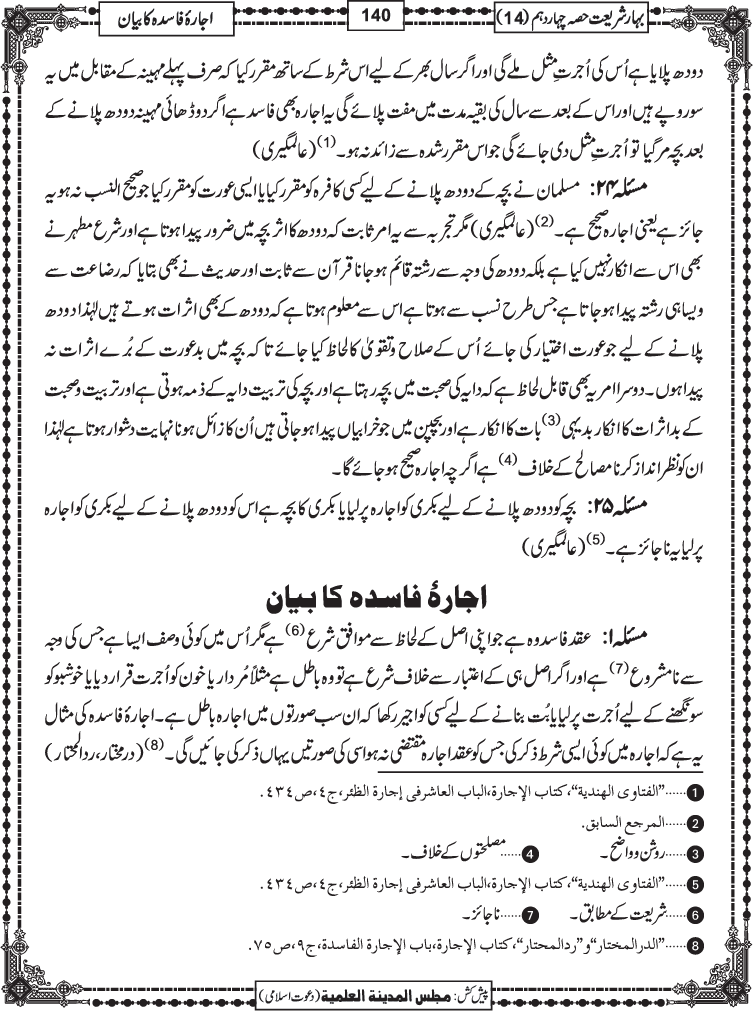 بہار شریعت حصہ چہاردہم (14)
140
اجارۂ فاسدہ کا بیان
دودھ پلایا ہے اُس کی اُجرتِ مثل ملے گی اور اگر سال بھر کے لیے اس شرط کے ساتھ مقرر کیا کہ صرف پہلے مہینہ کے مقابل میں یہ
سو روپے ہیں اور اس کے بعد سے سال کی بقیہ مدت میں مفت پلائے گی یہ اجارہ بھی فاسد ہے اگر دو ڈھائی مہینہ دودھ پلانے کے
بعد بچہ مر گیا تو اُجرتِ مثل دی جائے گی جو اس مقرر شدہ سے زائد نہ ہو۔(1) (عالمگیری)
مسئلہ ۲۴: مسلمان نے بچہ کے دودھ پلانے کے لیے کسی کافرہ کو مقرر کیا یا ایسی عورت کو مقرر کیا جو صحیح النسب نہ ہو یہ
جائز ہے یعنی اجارہ صحیح ہے۔(2) (عالمگیری) مگر تجربہ سے یہ امر ثابت کہ دودھ کا اثر بچہ میں ضرور پیدا ہوتا ہے اور شرع مطہر نے
بھی اس سے انکار نہیں کیا ہے بلکہ دودھ کی وجہ سے رشتہ قائم ہو جانا قرآن سے ثابت اور حدیث نے بھی بتایا کہ رضاعت سے
ویسا ہی رشتہ پیدا ہو جاتا ہے جس طرح نسب سے ہوتا ہے اس سے معلوم ہوتا ہے کہ دودھ کے بھی اثرات ہوتے ہیں لہٰذا دودھ
پلانے کے لیے جو عورت اختیار کی جائے اُس کے صلاح و تقویٰ کا لحاظ کیا جائے تاکہ بچہ میں بد عورت کے بُرے اثرات نہ
پیدا ہوں۔ دوسرا امر یہ بھی قابل لحاظ ہے کہ دایہ کی صحبت میں بچہ رہتا ہے اور بچہ کی تربیت دایہ کے ذمہ ہوتی ہے اور تربیت و صحبت
کے بد اثرات کا انکار بدیہی(3) بات کا انکار ہے اور بچپن میں جو خرابیاں پیدا ہو جاتی ہیں اُن کا زائل ہونا نہایت دشوار ہوتا ہے لہٰذا
ان کو نظر انداز کرنا مصالح کے خلاف(4) ہے اگرچہ اجارہ صحیح ہو جائے گا۔
مسئلہ ۲۵: بچہ کو دودھ پلانے کے لیے بکری کو اجارہ پر لیا یا بکری کا بچہ ہے اس کو دودھ پلانے کے لیے بکری کو اجارہ
پر لیا یہ ناجائز ہے۔(5) (عالمگیری)
اجارۂ فاسدہ کا بیان
مسئلہ ۱: عقد فاسد وہ ہے جو اپنی اصل کے لحاظ سے موافق شرع(6) ہے مگر اُس میں کوئی وصف ایسا ہے جس کی وجہ
سے نامشروع(7) ہے اور اگر اصل ہی کے اعتبار سے خلاف شرع ہے تو وہ باطل ہے مثلاً مُردار یا خون کو اُجرت قرار دیا یا خوشبو کو
سونگھنے کے لیے اُجرت پر لیا یا بُت بنانے کے لیے کسی کو اجیر رکھا کہ ان سب صورتوں میں اجارہ باطل ہے۔ اجارۂ فاسدہ کی مثال
یہ ہے کہ اجارہ میں کوئی ایسی شرط ذکر کی جس کو عقد اجارہ مقتضی نہ ہو اسی کی صورتیں یہاں ذکر کی جائیں گی۔(8) (درمختار، ردالمحتار)
1......"الفتاوى الهندية"، كتاب الإجارة، الباب العاشر فى إجارة الظئر، ج٤، ص٤٣٤.
2......المرجع السابق.
3......روشن و واضح۔ 4......مصلحتوں کے خلاف۔
5......"الفتاوى الهندية"، كتاب الإجارة، الباب العاشر فى إجارة الظئر، ج٤، ص٤٣٤.
6......شریعت کے مطابق۔ 7......ناجائز۔
8......"الدرالمختار" و "ردالمحتار"، كتاب الإجارة، باب الإجارة الفاسدة، ج٩، ص٧٥.
پیش کش: مجلس المدینۃ العلمیۃ (دعوت اسلامی)